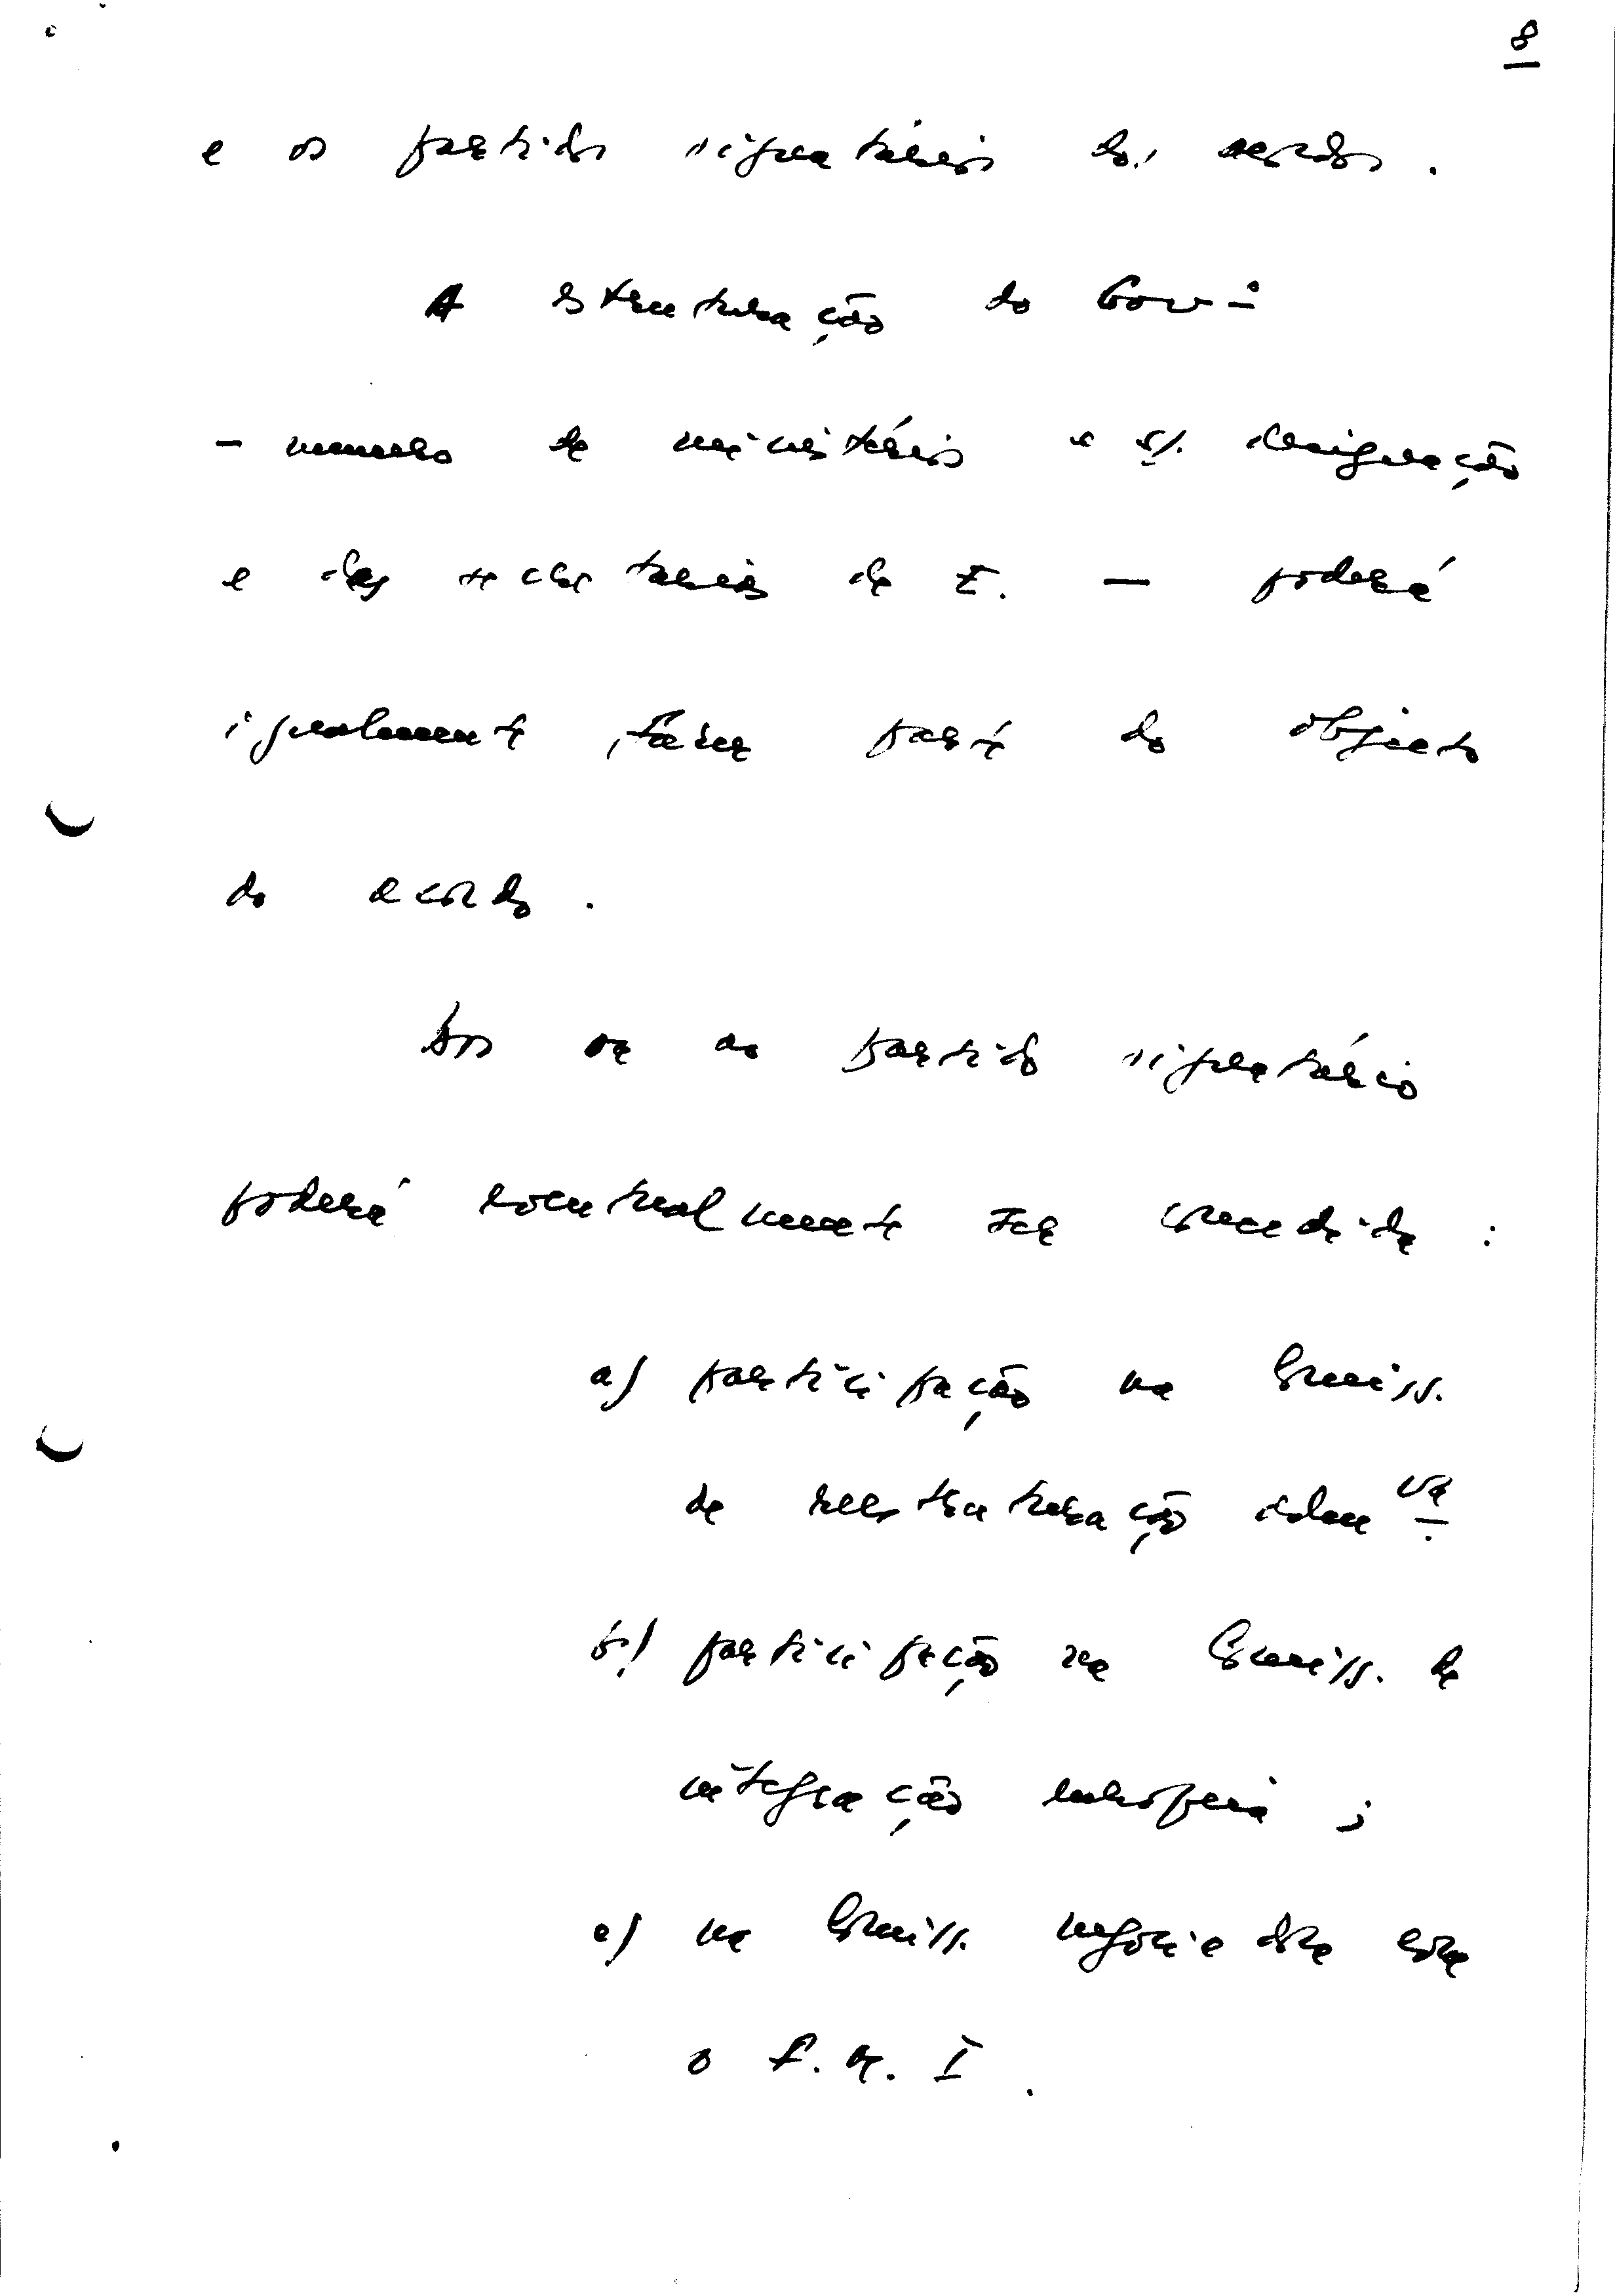 8
e os partidos signatários dos acordos.
A estruturação do Govº
- numero de ministérios e s/. designação
e das secretarias de E. — poderá
igualmente fazer parte do objecto
do acordo.
Aos ou ao partido signatário
poderá eventualmente ser concedida :
a) participação na Comiss.
de reestruturação adm va
b) participação na Comiss. de
integração europeia ;
c) na Comiss. negociadora com
o F. M. I.